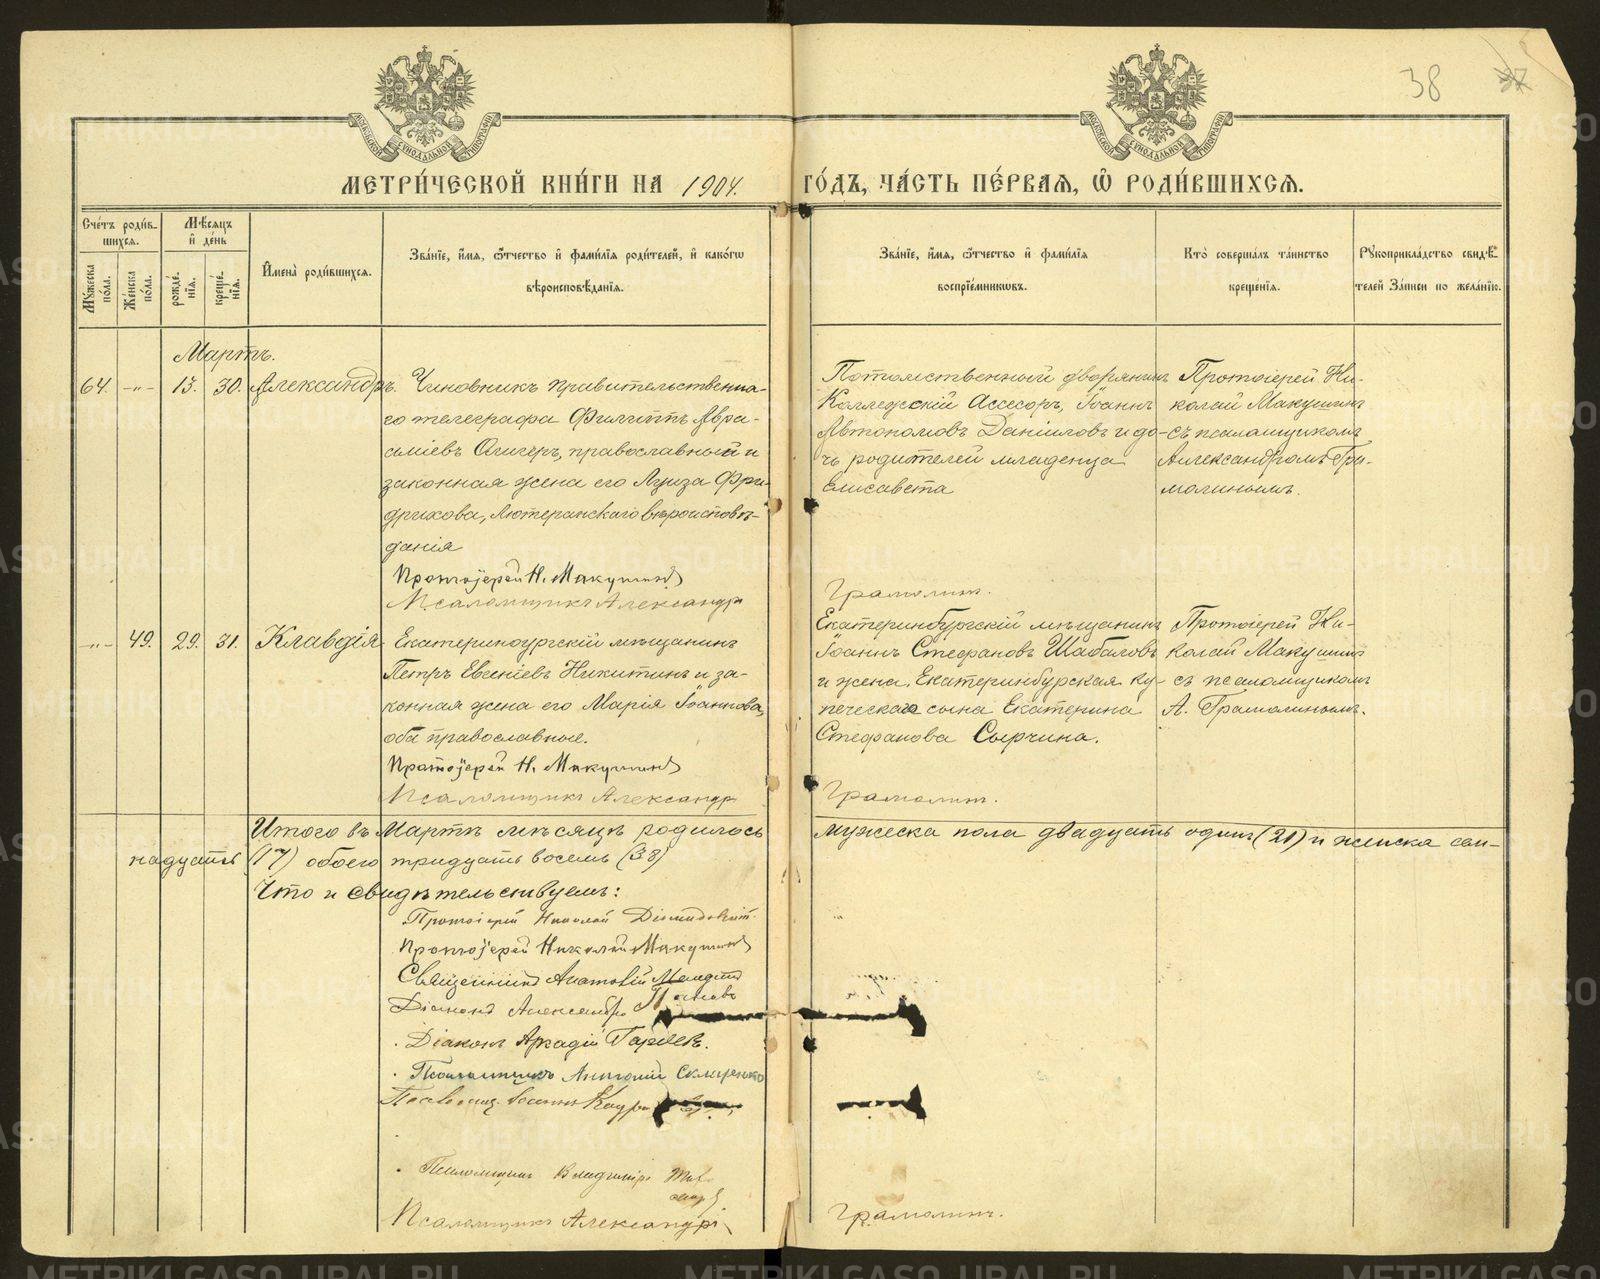 38
37
МОСКОВСКОЙ СѴНОДАЛЬНОЙ ТИПОГРАФІИ
МОСКОВСКОЙ СѴНОДАЛЬНОЙ ТИПОГРАФІИ
МЕТРИ́ЧЕСКОЙ КНИ́ГИ НА 1904. ГО́ДЪ, ЧА́СТЬ ПЕ́РВАѦ, Ѡ҆ РОДИ́ВШИХСѦ.
Сче́тъ роди́в-
шихсѧ.
Мѣ́сѧцъ
и҆ де́нь
Мꙋ́жеска по́ла.
Же́нска по́ла.
рожде́нїѧ.
креще́нїѧ.
И҆мена̀ роди́вшихсѧ.
Зва́нїе, и҆́мѧ, ѻ҆́тчество и҆ фами́лїѧ роди́телей, и҆ како́гѡ
вѣроисповѣ́данїѧ.
Зва́нїе, и҆́мѧ, ѻ҆́тчество и҆ фами́лїѧ
воспрїе́мникѡвъ.
Кто̀ соверша́лъ та́инство
креще́нїѧ.
Рꙋкоприкла́дство свидѣ́-
телей За́писи по жела́нїю.
Мартъ.
64. -„- 13. 30. Александръ. Чиновникъ правительственна-
го телеграфа Филиппъ Авра-
аміевъ Оигеръ, православный и
законная жена его Луиза Фри-
дрихова, Лютеранскаго вѣроисповѣ-
данія
Протоіерей Н. Макушинъ
Псаломщикъ Александръ
Потомственный дворянинъ
Коллежскій Ассесоръ, Іоаннъ
Автономовъ Даниловъ и до-
чь родителей младенца
Елисавета
Грамолинъ.
Протоіерей Ни-
колай Макушинъ
съ псаломщикомъ
Александромъ Гра-
молинымъ.
-„- 49. 29. 31. Клавдія Екатеринбургскій мѣщанинъ
Петръ Евгеніевъ Никитинъ и за-
конная жена его Марія Іоаннова,
оба православные.
Протоіерей Н. Макушинъ
Псаломщикъ Александръ
Екатеринбургскій мѣщанинъ
Іоаннъ Стефановъ Шабаловъ
и жена Екатеринбургская ку-
печескаго сына Екатерина
Стефанова Сырчина.
Грамолинъ.
Протоіерей Ни-
колай Макушинъ
съ псаломщикомъ
А. Грамолинымъ.
Итого въ Мартѣ мѣсяцѣ родилось мужеска пола двадцать одинъ (21) и женска сем-
надцать (17) обоего тридцать восемь (38)
Что и свидѣтельствуемъ:
Протоіерей Николай
Протоіерей Николай Макушинъ
Священникъ Анатолій
Діаконъ Александръ
Діаконъ Аркадій Гаряевъ.
Псаломщикъ Анатолій
Іоаннъ
Псаломщикъ Владимиръ
Псаломщикъ Александръ Грамолинъ.
METRIKI.GASO-URAL.RU